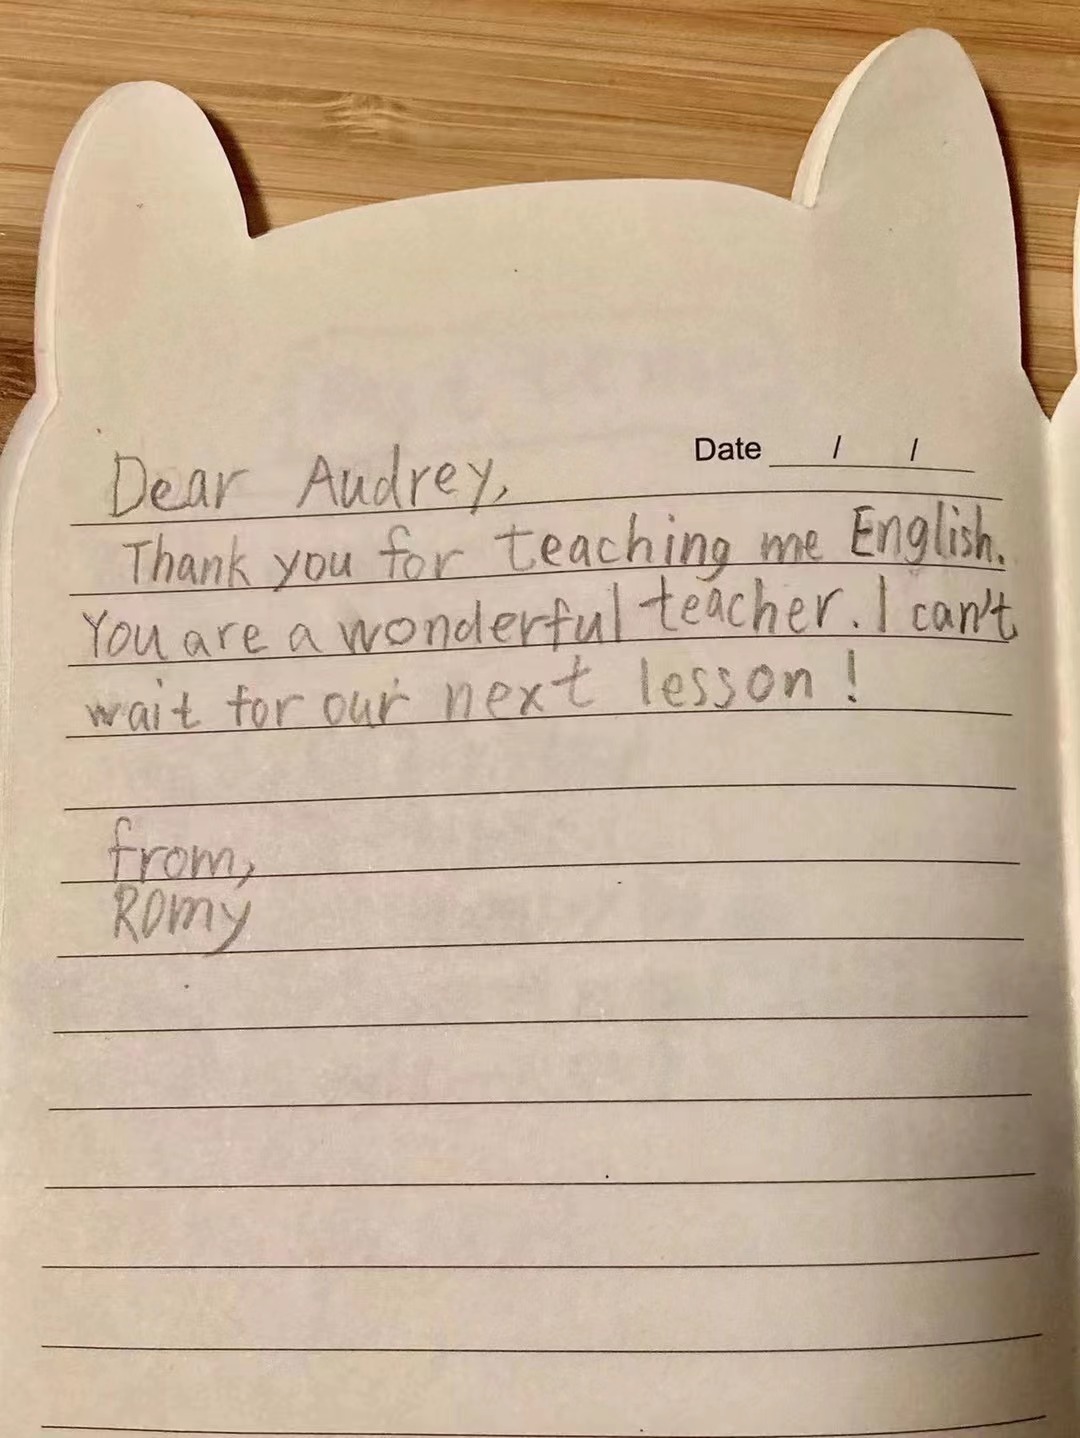 Date / /
Dear Audrey,
Thank you for teaching me English.
You are a wonderful teacher. I can't
wait for our next lesson!
from,
ROmy